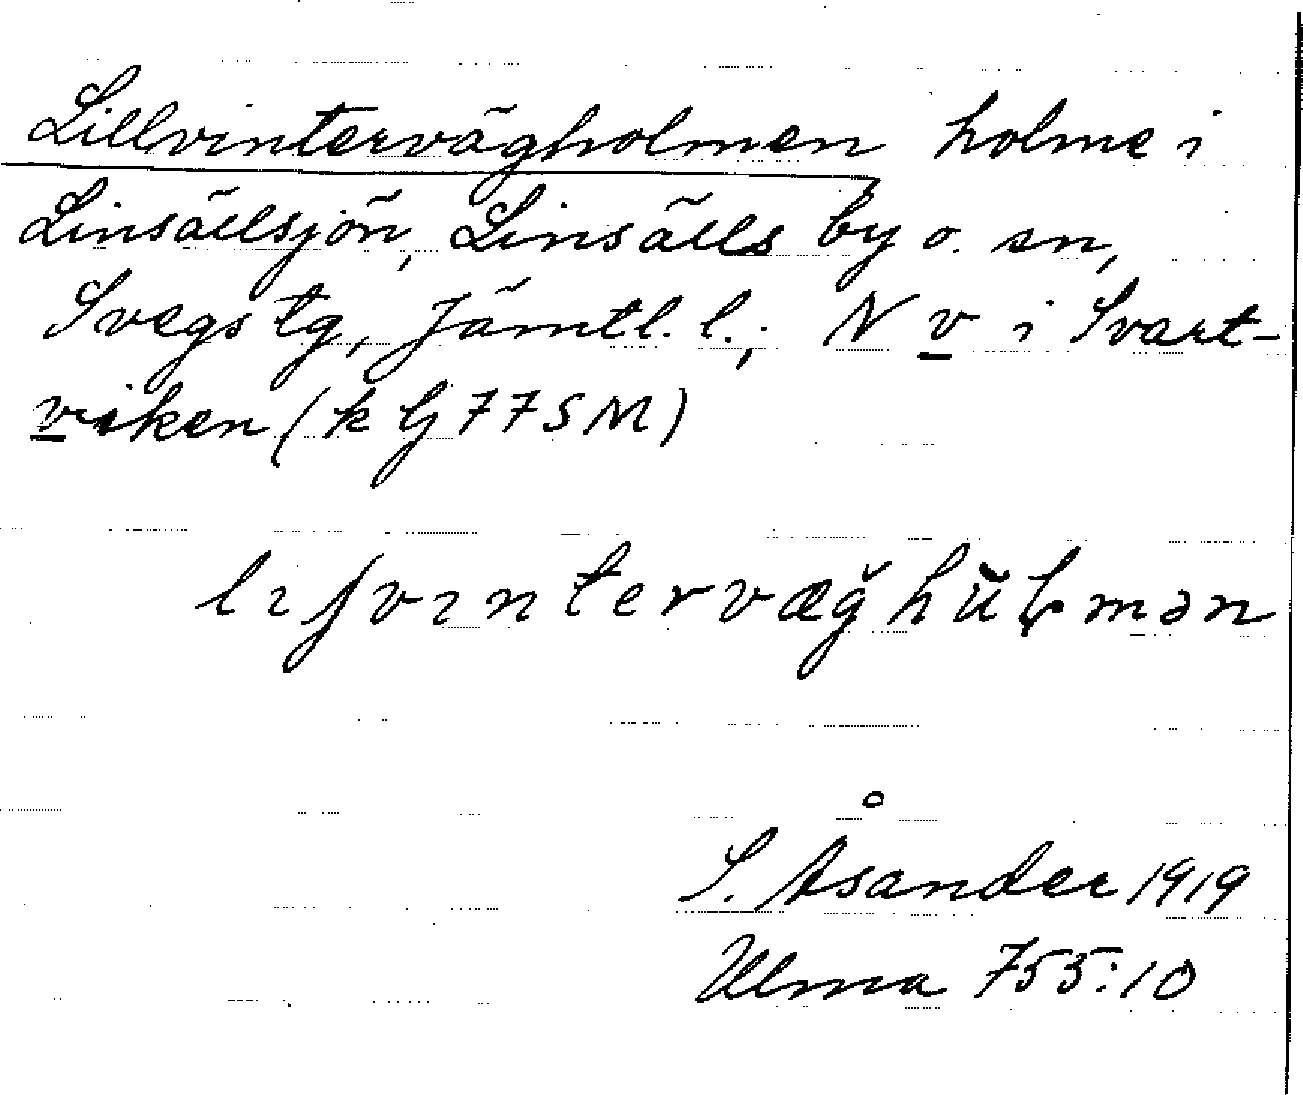 Lillvintervägholmen holme i
Linsällsjön, Linsälls by o. sn,
Svegs tg, Jämtl. l.; N v i Svart-
viken (k G 77 SM)
S. Åsander 1919
Ulma 755:10